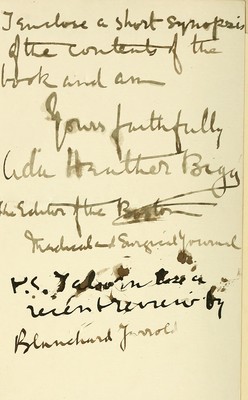 I enclose a short synopsis
of the contents of the
book and am
Yours faithfully
Ada Heather Bigg
The Editor of the Boston
Medical and Surgical Journal
P.S. I also a
recent review by
Blanchard Jerrold